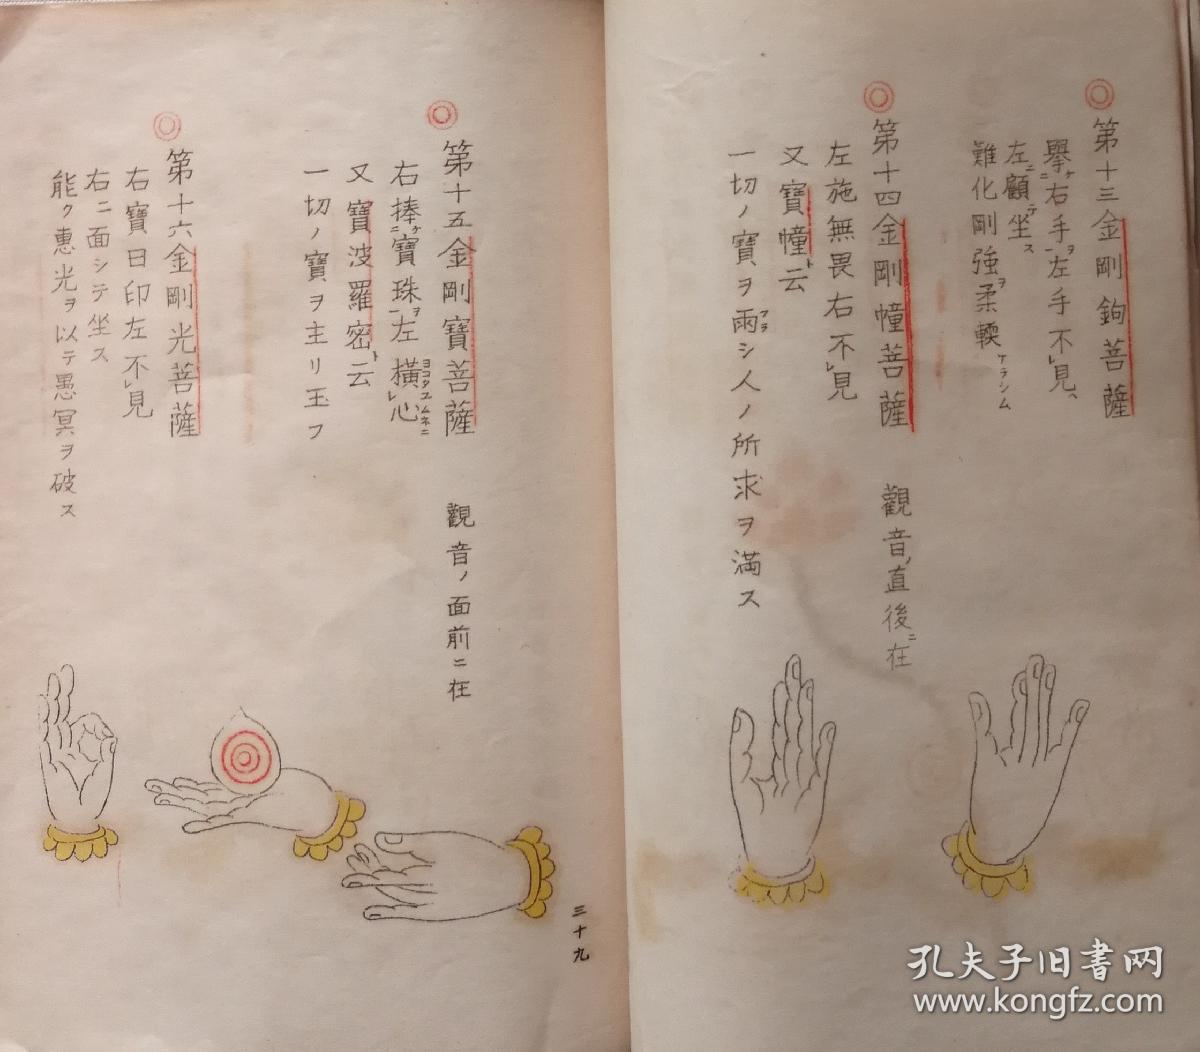 第十三金剛鉤菩薩
擧ケ右手ヲ左手不レ見、
左ニ顧ニテ坐ス
難化剛強ヲ柔輭ナラシム
第十四金剛幢菩薩 觀音ノ直後ニ在
左施無畏右不レ見
又寶幢ト云
一切ノ寶ヲ雨フラシ人ノ所求ヲ満ス
第十五金剛寶菩薩 觀音ノ面前ニ在
右捧ニケ寶珠一ヲ左橫ヨコタエレ心ムネニ
又寶波羅密ト云
一切ノ寶ヲ主リ玉フ
第十六金剛光菩薩
右寶日印左不レ見
右ニ面シテ坐ス
能ク惠光ヲ以テ愚冥ヲ破ス
三十九
孔夫子旧書网
www.kongfz.com